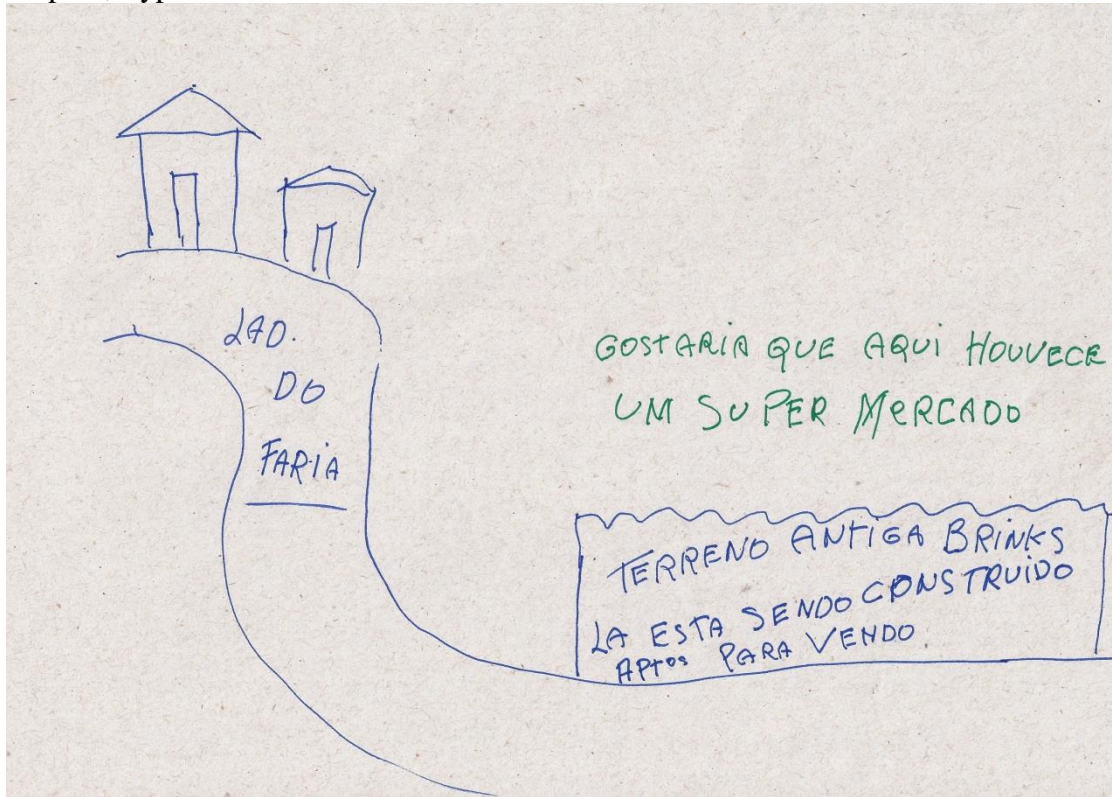 LAD.
DO
FARIA
GOSTARIA QUE AQUI HOUVECE
UM SUPER MERCADO
TERRENO ANTIGA BRINKS
LA ESTA SENDO CONSTRUIDO
APTOS PARA VENDO